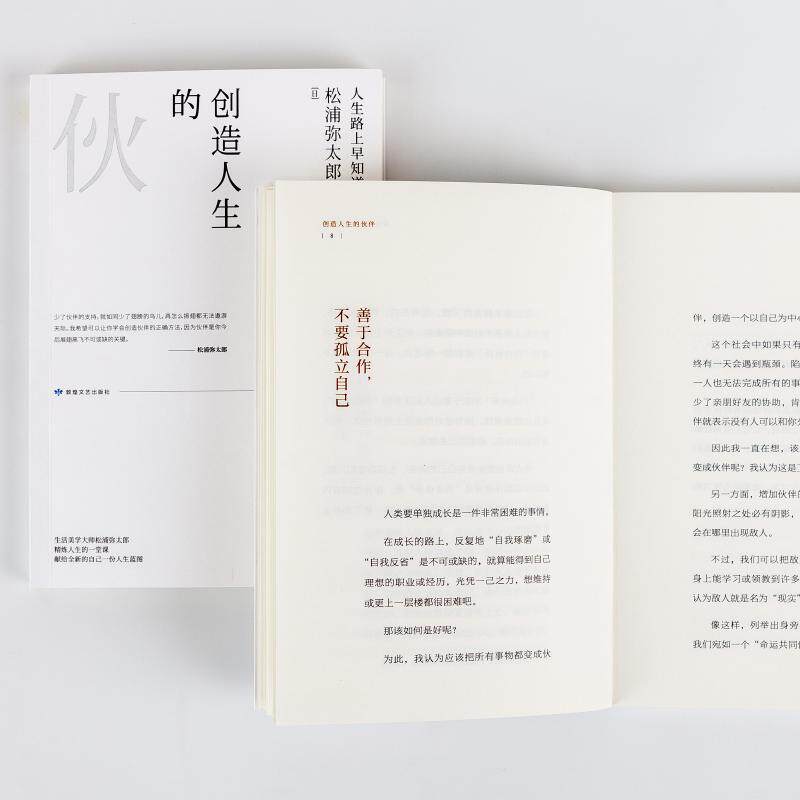 伙
创造人生
的
人生路上早知道
[日]
松浦弥太郎
少了伙伴的支持，就如同少了翅膀的鸟儿，再怎么振翅都无法遨游
天际。我希望可以让你学会创造伙伴的正确方法，因为伙伴是你今
后展翅高飞不可或缺的关键。
——松浦弥太郎
敦煌文艺出版社
生活美学大师松浦弥太郎
精炼人生的一堂课
献给全新的自己一份人生蓝图
创造人生的伙伴
| 8 |
善于合作，
不要孤立自己
人类要单独成长是一件非常困难的事情。
在成长的路上，反复地“自我琢磨”或
“自我反省”是不可或缺的，就算能得到自己
理想的职业或经历，光凭一己之力，想维持
或更上一层楼都很困难吧。
那该如何是好呢？
为此，我认为应该把所有事物都变成伙
伴，创造一个以自己为中心
这个社会中如果只有
终有一天会遇到瓶颈。陷
一人也无法完成所有的事
少了亲朋好友的协助，肯
伴就表示没有人可以和你分
因此我一直在想，该
变成伙伴呢？我认为这是
另一方面，增加伙伴的
阳光照射之处必有阴影，
会在哪里出现敌人。
不过，我们可以把敌
身上能学习或领教到许多
认为敌人就是名为“现实”
像这样，列举出身旁
我们宛如一个“命运共同体